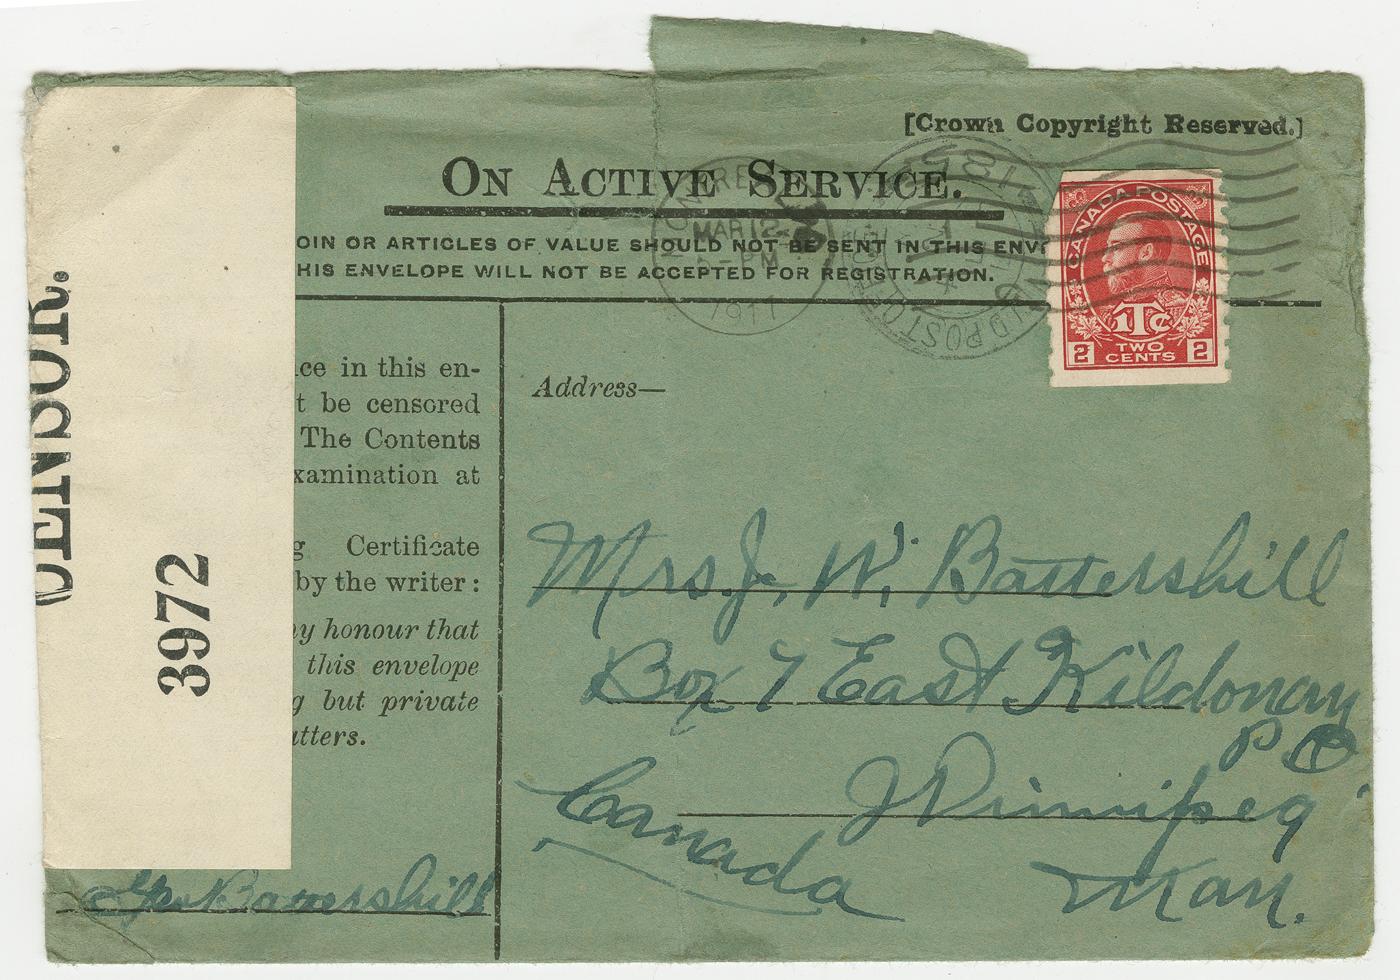 [Crown Copyright Reserved.]
ON ACTIVE SERVICE.
OIN OR ARTICLES OF VALUE SHOULD NOT BE SENT IN THIS ENV
HIS ENVELOPE WILL NOT BE ACCEPTED FOR REGISTRATION.
MAR 12
PM
1917
LD POST OF
CANADA POSTAGE
1Tc
2 TWO CENTS 2
CENSOR.
3972
ce in this en-
t be censored
The Contents
xamination at
g Certificate
by the writer:
y honour that
this envelope
g but private
tters.
Battershill
Address—
Mrs. J. W. Battershill
Box 7 East Kildonan
P.O
Winnipeg
Canada
Man.